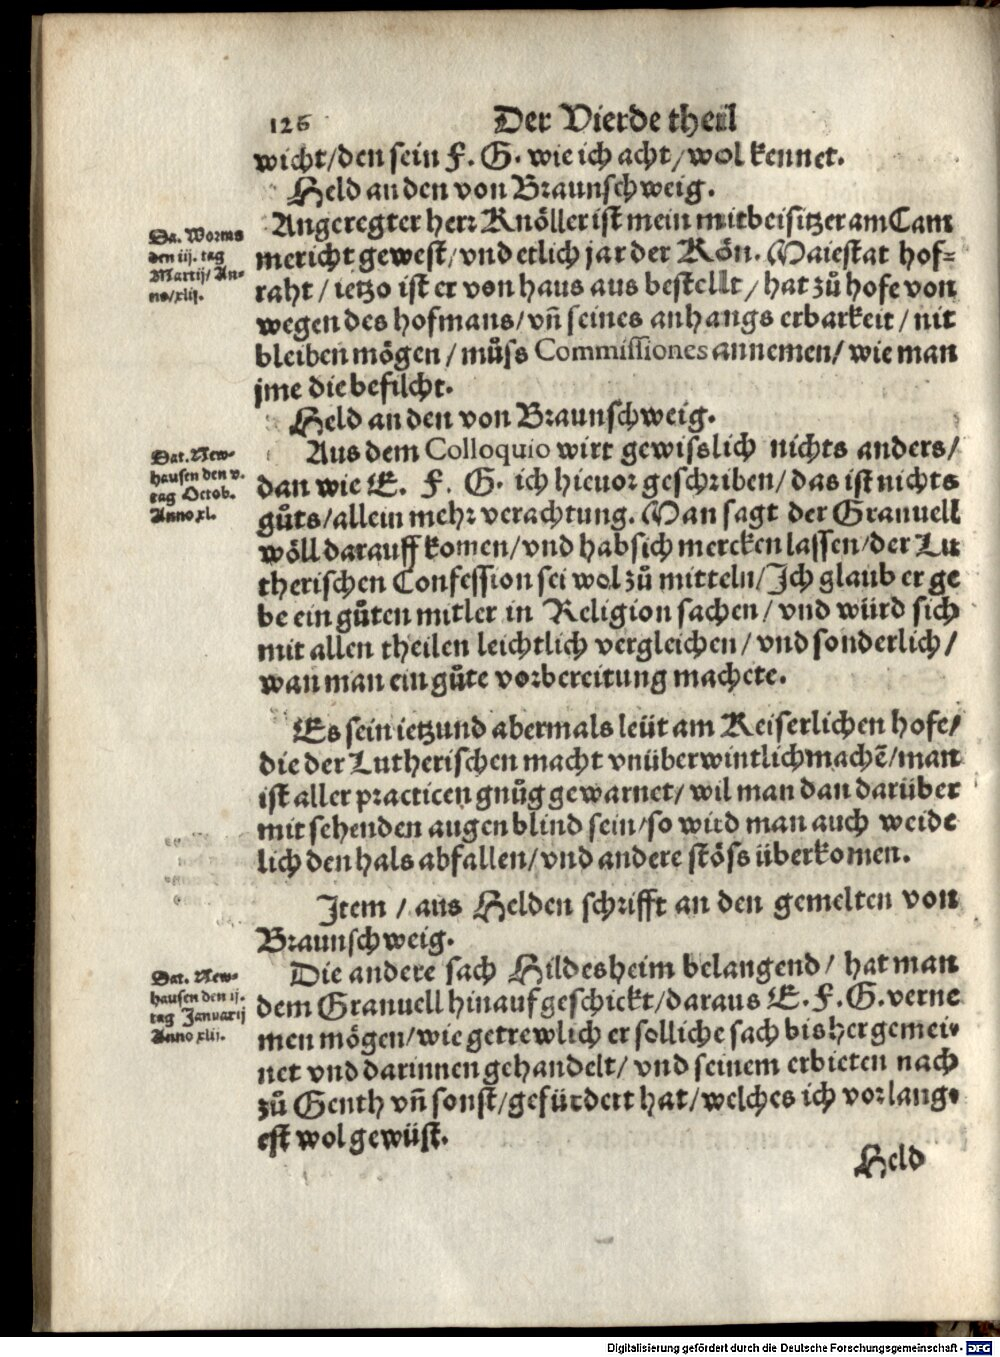 126 Der Vierde theil
wicht/den sein F. G. wie ich acht/wol kennet.
Held an den von Braunschweig.
Da. Worms
den iij. tag
Martij/ An-
no/xlij.
Angeregter herr Knöller ist mein mitbeisitzer am Cam
mericht gewest/vnd etlich jar der Kön. Maiestat hof-
raht/ietzo ist er von haus aus bestellt/hat zů hofe von
wegen des hofmans/vñ seines anhangs erbarkeit/nit
bleiben mögen/můss Commissiones annemen/wie man
jme die befilcht.
Held an den von Braunschweig.
Dat. New-
hausen den v.
tag Octob.
Anno xl.
Aus dem Colloquio wirt gewisslich nichts anders/
dan wie E. F. G. ich hieuor geschriben/das ist nichts
gůts/allein mehr verachtung. Man sagt der Granuell
wöll darauff komen/vnd hab sich mercken lassen/der Lu
therischen Confession sei wol zů mitteln/Ich glaub er ge
be ein gůten mitler in Religion sachen/vnd würd sich
mit allen theilen leichtlich vergleichen/vnd sonderlich/
wan man ein gůte vorbereitung machete.
Es sein ietzund abermals leüt am Keiserlichen hofe/
die der Lutherischen macht vnüberwintlich machẽ/man
ist aller practicen gnůg gewarnet/wil man dan darüber
mit sehenden augen blind sein/so wird man auch weide
lich den hals abfallen/vnd andere stöss überkomen.
Item/aus Helden schrifft an den gemelten von
Braunschweig.
Dat. New-
hausen den ij.
tag Januarij
Anno xlij.
Die andere sach Hildesheim belangend/hat man
dem Granuell hinauf geschickt/daraus E. F. G. verne
men mögen/wie getrewlich er solliche sach bisher gemei-
net vnd darinnen gehandelt/vnd seinem erbieten nach
zů Genth vñ sonst/gefürdert hat/welches ich vorlang-
est wol gewüst.
Held
Digitalisierung gefördert durch die Deutsche Forschungsgemeinschaft - DFG